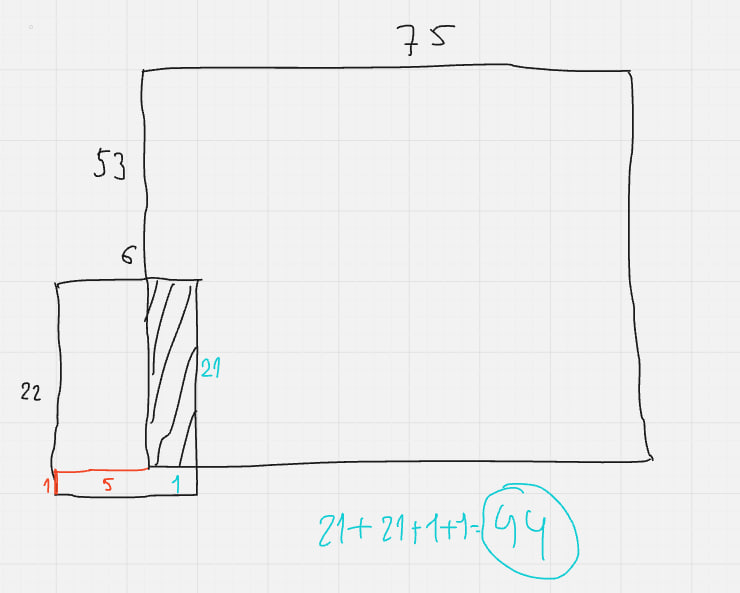 75
53
6
22
21
1 5 1
21+21+1+1=44